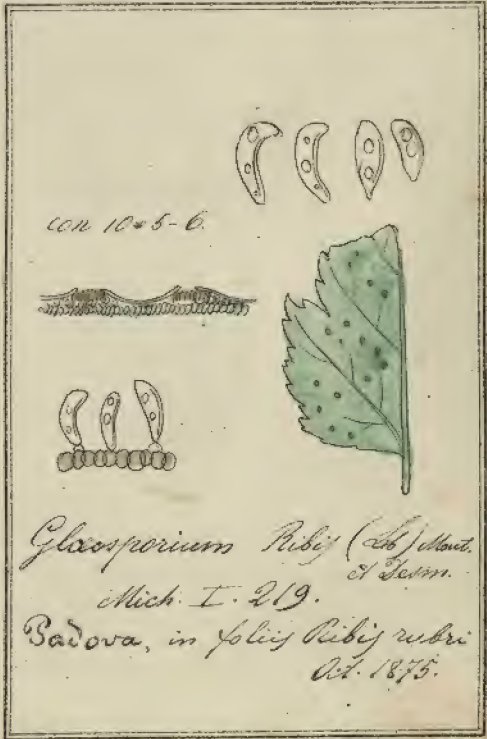 con 10*5-6.
Glœosporium Ribis (Lib) Mont.
et Desm.
Mich. I. 219.
Padova, in foliis Ribis rubri
Oct. 1875.